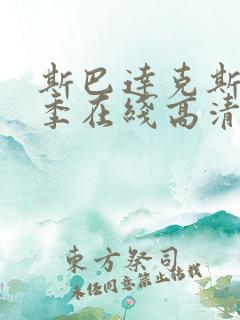 斯巴達克斯
季在綫高清
東方祭司
未经同意禁止转载